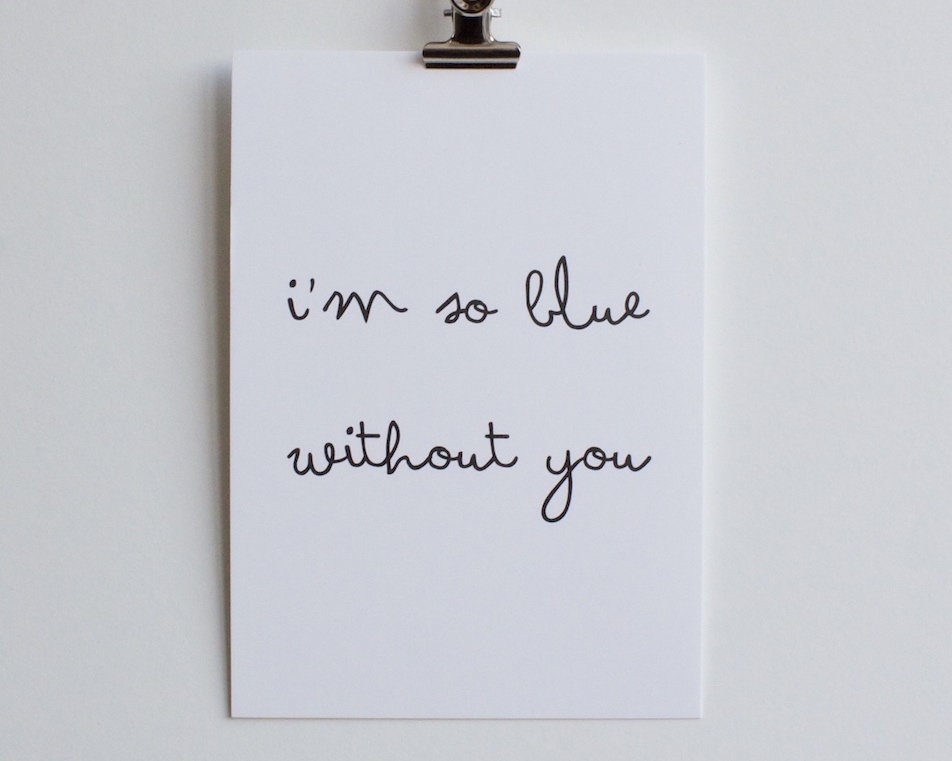 i'm so blue
without you